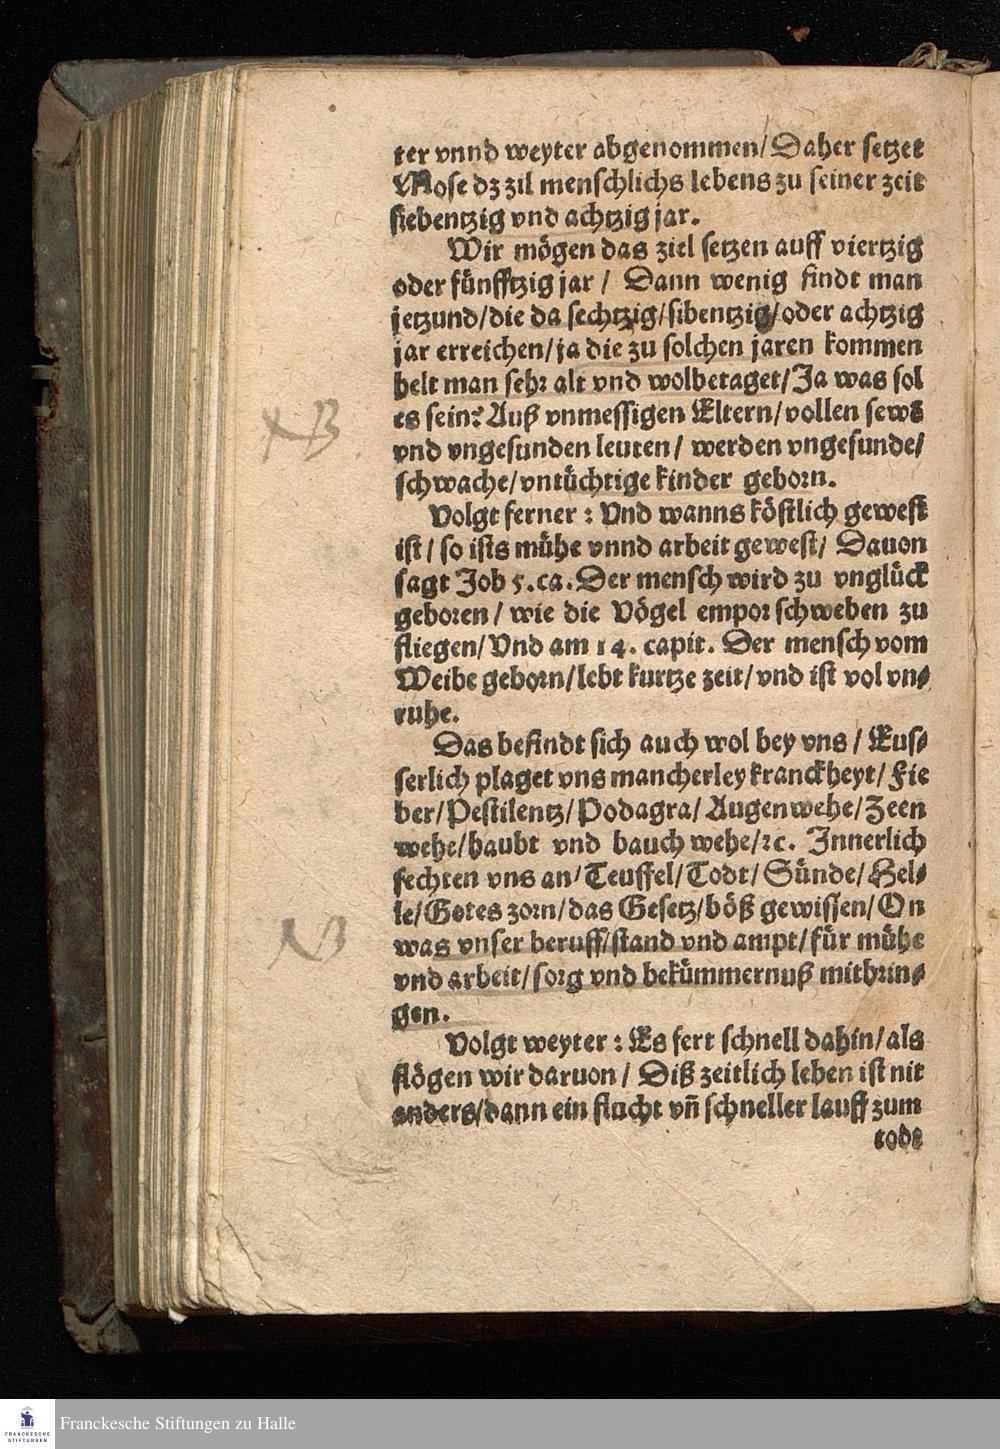 ter vnnd weyter abgenommen/ Daher setzet
Mose dz zil menschlichs lebens zu seiner zeit
siebentzig vnd achtzig jar.
Wir mögen das ziel setzen auff viertzig
oder fünfftzig jar / Dann wenig findt man
jetzund/die da sechtzig/sibentzig/oder achtzig
jar erreichen/ja die zu solchen jaren kommen
helt man sehr alt vnd wolbetaget/Ja was sol
es sein? Auß vnmessigen Eltern/vollen sewē
vnd vngesunden leuten/ werden vngesunde/
schwache/vntüchtige kinder geborn.
Volgt ferner: Vnd wanns köstlich gewest
ist/ so ists mühe vnnd arbeit gewest/ Dauon
sagt Job 5.ca. Der mensch wird zu vnglück
geboren/ wie die Vögel empor schweben zu
fliegen/Vnd am 14. capit. Der mensch vom
Weibe geborn/lebt kurtze zeit/vnd ist vol vn-
ruhe.
Das befindt sich auch wol bey vns / Eus-
serlich plaget vns mancherley kranckheyt/ Fie
ber/Pestilentz/Podagra/Augenwehe/Zeen
wehe/haubt vnd bauch wehe/ꝛc. Innerlich
fechten vns an/Teuffel/Todt/Sünde/Hel-
le/Gotes zorn/das Gesetz/böß gewissen/On
was vnser beruff/stand vnd ampt/für mühe
vnd arbeit/sorg vnd bekümmernuß mitbrin-
gen.
Volgt weyter: Es fert schnell dahin/als
flögen wir daruon / Diß zeitlich leben ist nit
anders/dann ein flucht vñ schneller lauff zum
todt
NB.
NB
Franckesche Stiftungen zu Halle
FRANCKESCHE
STIFTUNGEN